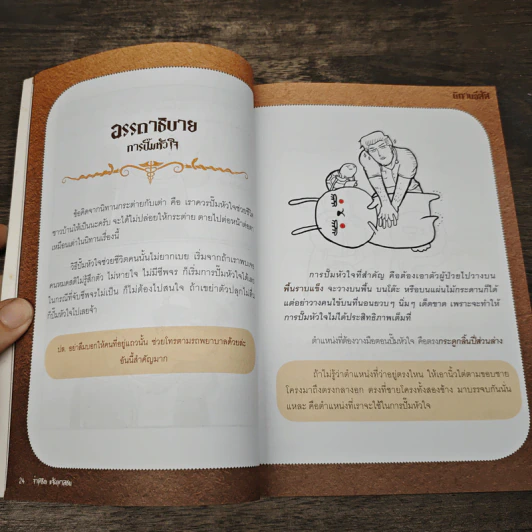 อรรถาธิบาย
การปั๊มหัวใจ
ข้อคิดจากนิทานกระต่ายกับเต่า คือ เราควรปั๊มหัวใจช่วยชีวิต
ชาวบ้านให้เป็นนะครับ จะได้ไม่ปล่อยให้กระต่าย ตายไปต่อหน้าต่อตา
เหมือนเต่าในนิทานเรื่องนี้
วิธีปั๊มหัวใจช่วยชีวิตคนนั้นไม่ยากเบย เริ่มจากถ้าเราพบเจอ
คนหมดสติไม่รู้สึกตัว ไม่หายใจ ไม่มีชีพจร ก็เริ่มการปั๊มหัวใจได้เลย
ในกรณีที่จับชีพจรไม่เป็น ก็ไม่ต้องไปสนใจ ถ้าเขย่าตัวปลุกไม่ตื่น
ก็ปั๊มหัวใจไปเลยจ้า
ปล. อย่าลืมบอกให้คนที่อยู่แถวนั้น ช่วยโทรตามรถพยาบาลด้วยล่ะ
อันนี้สำคัญมาก
24
การปั๊มหัวใจที่สำคัญ คือต้องเอาตัวผู้ป่วยไปวางบน
พื้นราบแข็ง จะวางบนพื้น บนโต๊ะ หรือบนแผ่นไม้กระดานก็ได้
แต่อย่าวางคนไข้บนที่นอนยวบๆ นิ่มๆ เด็ดขาด เพราะจะทำให้
การปั๊มหัวใจไม่ได้ประสิทธิภาพเต็มที่
ตำแหน่งที่ต้องวางมือตอนปั๊มหัวใจ คือตรงกระดูกลิ้นปี่ส่วนล่าง
ถ้าไม่รู้ว่าตำแหน่งที่ว่าอยู่ตรงไหน ให้เอานิ้วไต่ตามขอบชาย
โครงมาถึงตรงกลางอก ตรงที่ชายโครงทั้งสองข้าง มาบรรจบกันนั่น
แหละ คือตำแหน่งที่เราจะใช้ในการปั๊มหัวใจ